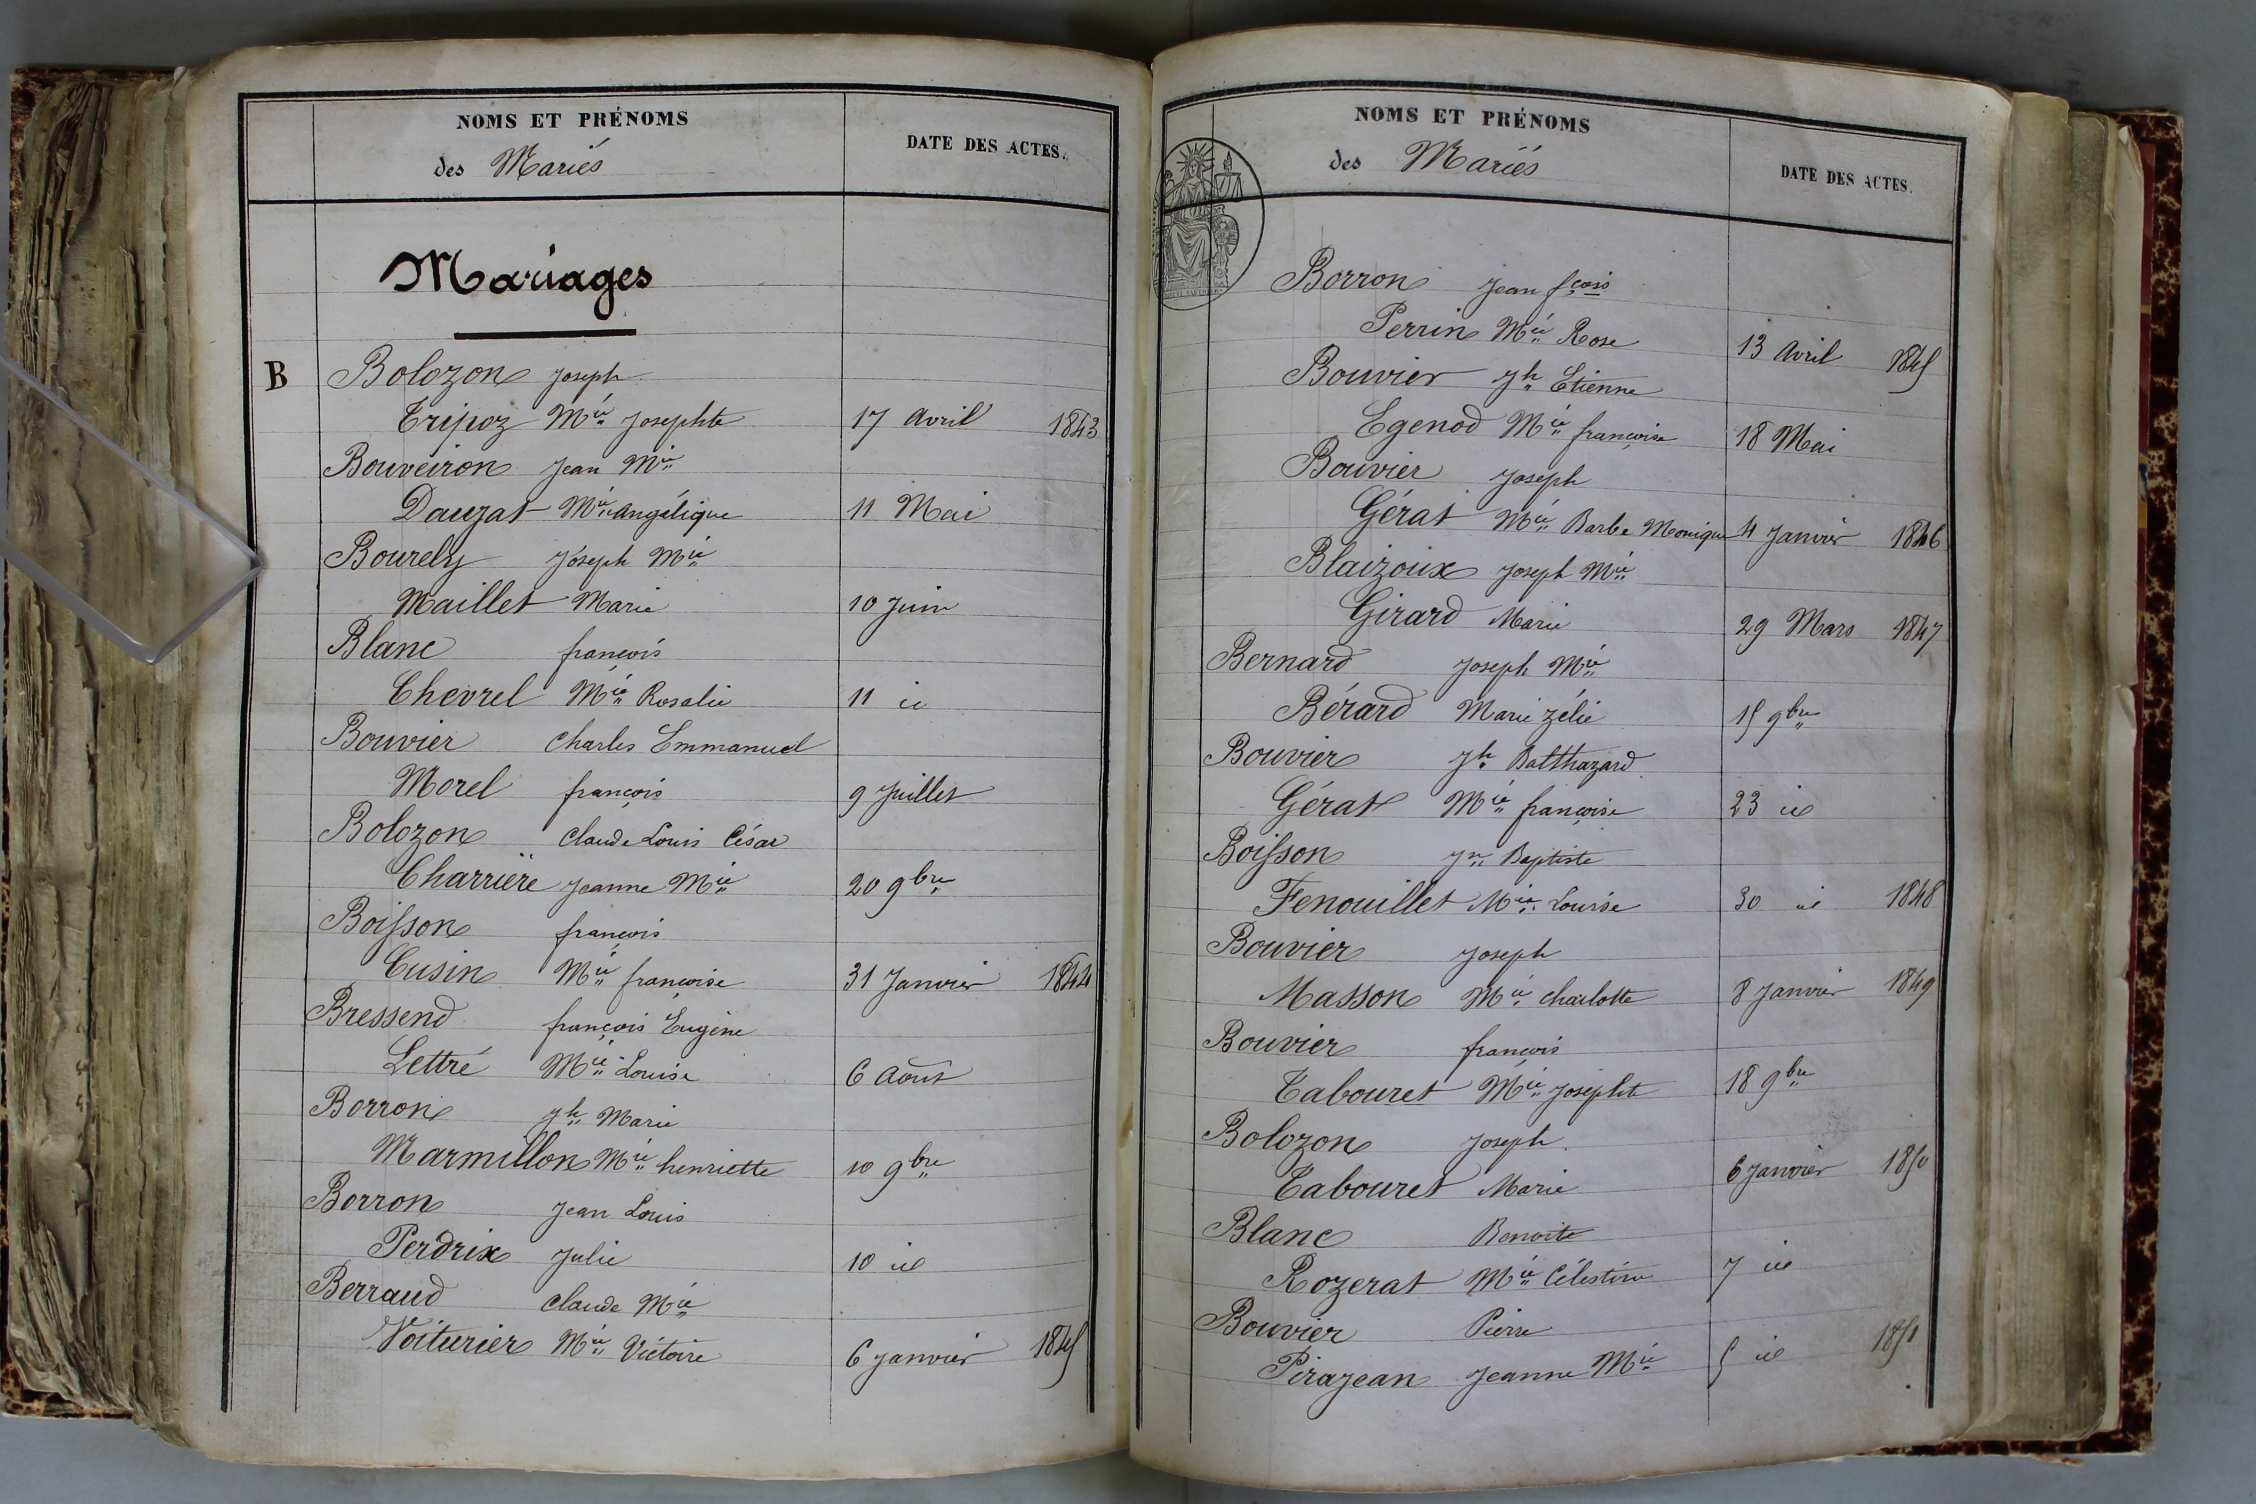 NOMS ET PRÉNOMS
des Mariés
DATE DES ACTES.
Mariages
B
Bolozon Joseph
Tripoz Mie Josephte 17 Avril 1843
Bouveiron Jean Mie
Dauzat Mie Angélique 11 Mai
Bourely Joseph Mie
Maillet Marie 10 Juin
Blanc françois
Chevrel Mie Rosalie 11 id
Bouvier Charles Emmanuel
Morel françois 9 Juillet
Bolozon Claude Louis César
Charrière Jeanne Mie 20 9bre
Boisson françois
Cusin Mie françoise 31 Janvier 1844
Bressend françois Eugène
Lettré Mie Louise 6 Août
Borron Jh Marie
Marmillon Mie henriette 10 9bre
Borron Jean Louis
Perdrix Julie 10 id
Berraud Claude Mie
Voiturier Mie Victoire 6 Janvier 1845
NOMS ET PRÉNOMS
des Mariés
DATE DES ACTES.
Borron Jean fçois
Perrin Mie Rose 13 Avril 1845
Bouvier Jh Etienne
Egenod Mie françoise 18 Mai
Bouvier Joseph
Gérat Mie Barbe Monique 4 Janvier 1846
Blaizoux Joseph Mie
Girard Marie 29 Mars 1847
Bernard Joseph Mie
Bérard Marie Zélie 15 9bre
Bouvier Jh Balthazard
Gérat Mie françoise 23 id
Boisson Jn Baptiste
Fenouillet Mie Louise 30 id 1848
Bouvier Joseph
Masson Mie Charlotte 8 Janvier 1849
Bouvier françois
Tabouret Mie Josephte 18 9bre
Bolozon Joseph
Tabouret Marie 6 Janvier 1850
Blanc Benoite
Rozerat Mie Célestine 7 id
Bouvier Pierre
Pirajean Jeanne Mie 5 id 1851